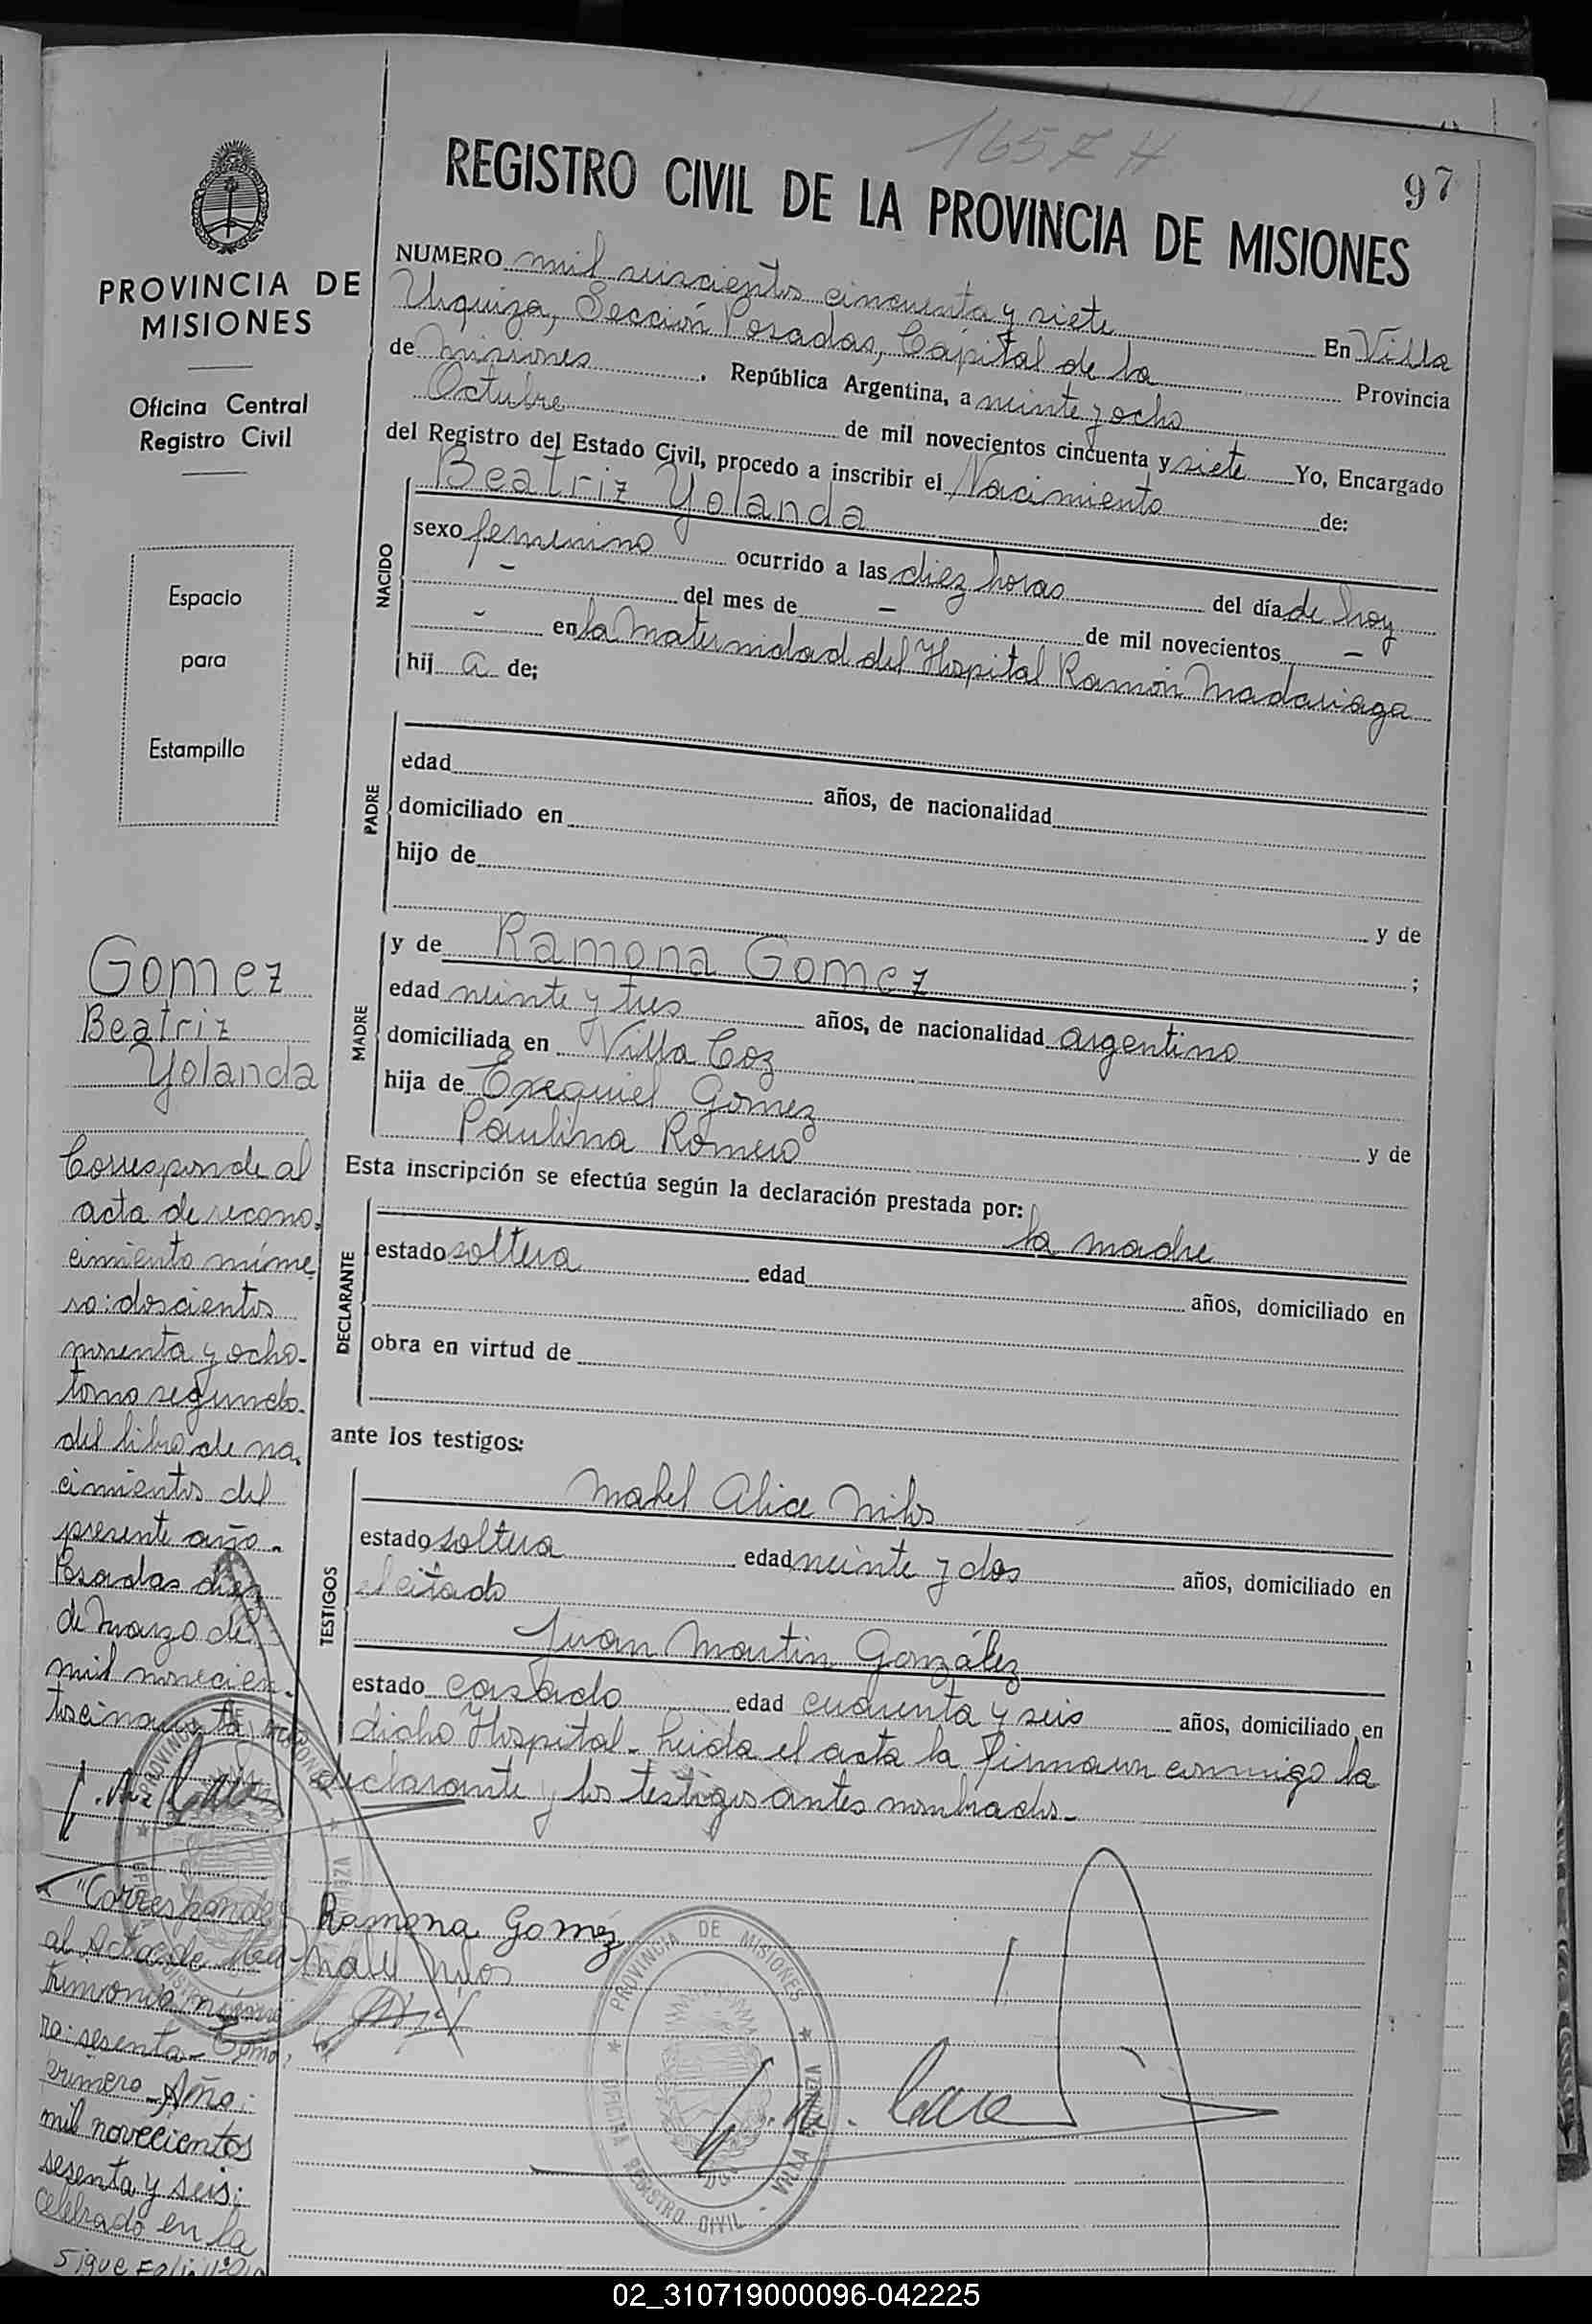 1657 H
97
REGISTRO CIVIL DE LA PROVINCIA DE MISIONES
PROVINCIA DE
MISIONES
Oficina Central
Registro Civil
Espacio
para
Estampilla
NUMERO mil seiscientos cincuenta y siete En Villa
Urquiza, Sección Posadas, Capital de la Provincia
de Misiones, República Argentina, a veinte y ocho
Octubre de mil novecientos cincuenta y siete Yo, Encargado
del Registro del Estado Civil, procedo a inscribir el Nacimiento de:
NACIDO
Beatriz Yolanda
sexo femenino ocurrido a las diez horas del día de hoy
- del mes de - de mil novecientos -
- en la Maternidad del Hospital Ramón Madariaga
hij a de;
PADRE
edad años, de nacionalidad
domiciliado en
hijo de
y de
;
MADRE
y de Ramona Gomez
edad veinte y tres años, de nacionalidad argentino
domiciliada en Villa Coz
hija de Exequiel Gomez
y de
Paulina Romero
Esta inscripción se efectúa según la declaración prestada por:
DECLARANTE
la madre
estado soltera edad años, domiciliado en
obra en virtud de
ante los testigos:
TESTIGOS
Mabel Alice Niños
estado soltera edad veinte y dos años, domiciliado en
el citado
Juan Martin González
estado casado edad cuarenta y seis años, domiciliado en
dicho Hospital. Leida el acta la firmaron conmigo la
declarante y los testigos antes nombrados.
Ramona Gomez
PROVINCIA DE MISIONES
OFICINA REGISTRO CIVIL - VILLA URQUIZA
Gomez
Beatriz
Yolanda
Corresponde al
acta de recono
cimiento núme
ro: doscientos
noventa y ocho.
tomo segundo.
del libro de na
cimientos del
presente año.
Posadas diez
de Marzo de
mil novecien
tos cincuenta y
PROVINCIA DE MISIONES
"Corresponde
al Acta de Ma
trimonio núme
ro: sesenta - Tomo:
primero - Año:
mil novecientos
sesenta y seis;
celebrado en la
Sigue Folio
02_310719000096-042225